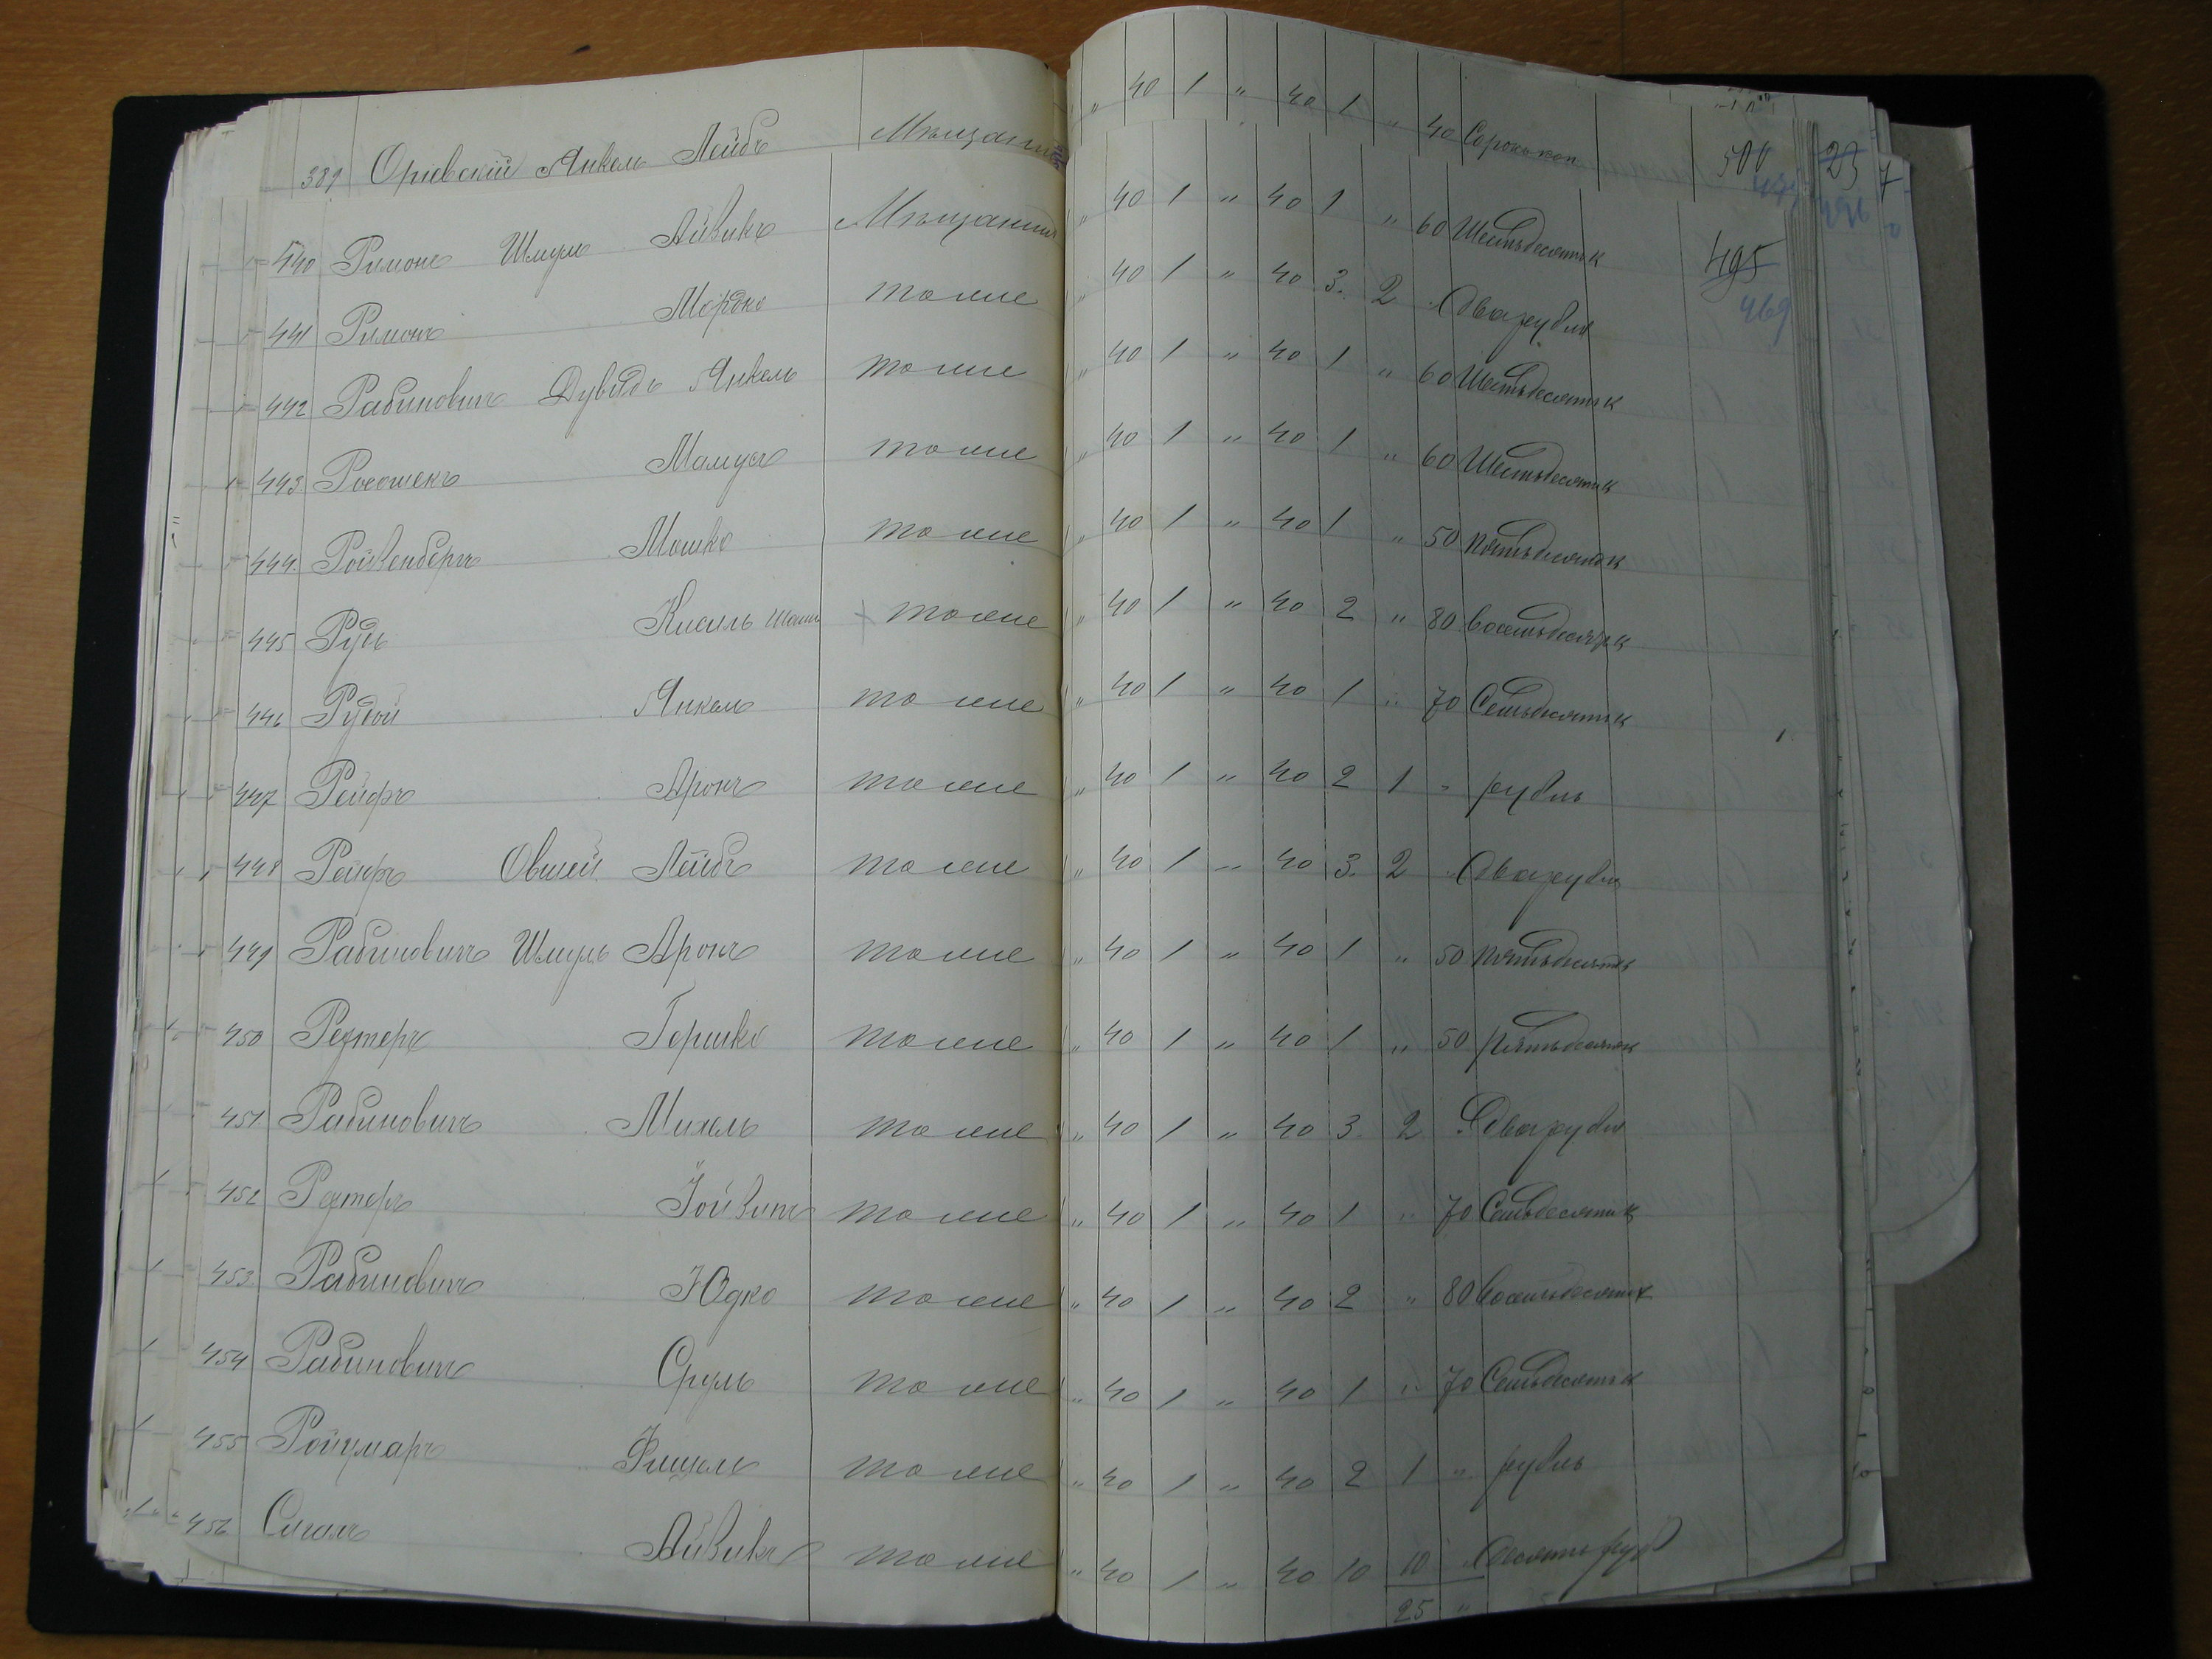 389 Оріевскій Янкель Лейбъ Мѣщанинъ „ 40 1 „ 40 1 „ 40 Сорокъ коп 500 23 7
440 Римонъ Шмуль Айзикъ Мѣщанинъ „ 40 1 „ 40 1 „ 60 Шестьдесятъ к 495
441 Римонъ Мордко тоже „ 40 1 „ 40 3 2 „ Два рубля 469
442 Рабиновичъ Дувидъ Янкель тоже „ 40 1 „ 40 1 „ 60 Шестьдесятъ к
443 Росошекъ Мамусъ тоже „ 40 1 „ 40 1 „ 60 Шестьдесятъ к
444 Ройзенбергъ Мошко тоже „ 40 1 „ 40 1 „ 50 Пятьдесятъ к
445 Рудь Кисель тоже „ 40 1 „ 40 2 „ 80 Восемьдесятъ к
446 Рудой Янкель тоже „ 40 1 „ 40 1 „ 70 Семьдесятъ к
447 Рейфъ Аронъ тоже „ 40 1 „ 40 2 1 „ рубль
448 Рейфъ Овшей Лейбъ тоже „ 40 1 „ 40 3 2 „ Два рубля
449 Рабиновичъ Шмуль Аронъ тоже „ 40 1 „ 40 1 „ 50 Пятьдесятъ к
450 Рехтеръ Гершко тоже „ 40 1 „ 40 1 „ 50 Пятьдесятъ к
451 Рабиновичъ Михель тоже „ 40 1 „ 40 3 2 Два рубля
452 Рехтеръ Іойзипъ тоже „ 40 1 „ 40 1 „ 70 Семьдесятъ к
453 Рабиновичъ Юдко тоже „ 40 1 „ 40 2 „ 80 Восемьдесятъ к
454 Рабиновичъ Сруль тоже „ 40 1 „ 40 1 „ 70 Семьдесятъ к
455 Фишель тоже „ 40 1 „ 40 2 1 „ рубль
456 Сигалъ Айзикъ тоже „ 40 1 „ 40 10 10 „ Десять руб
25 „